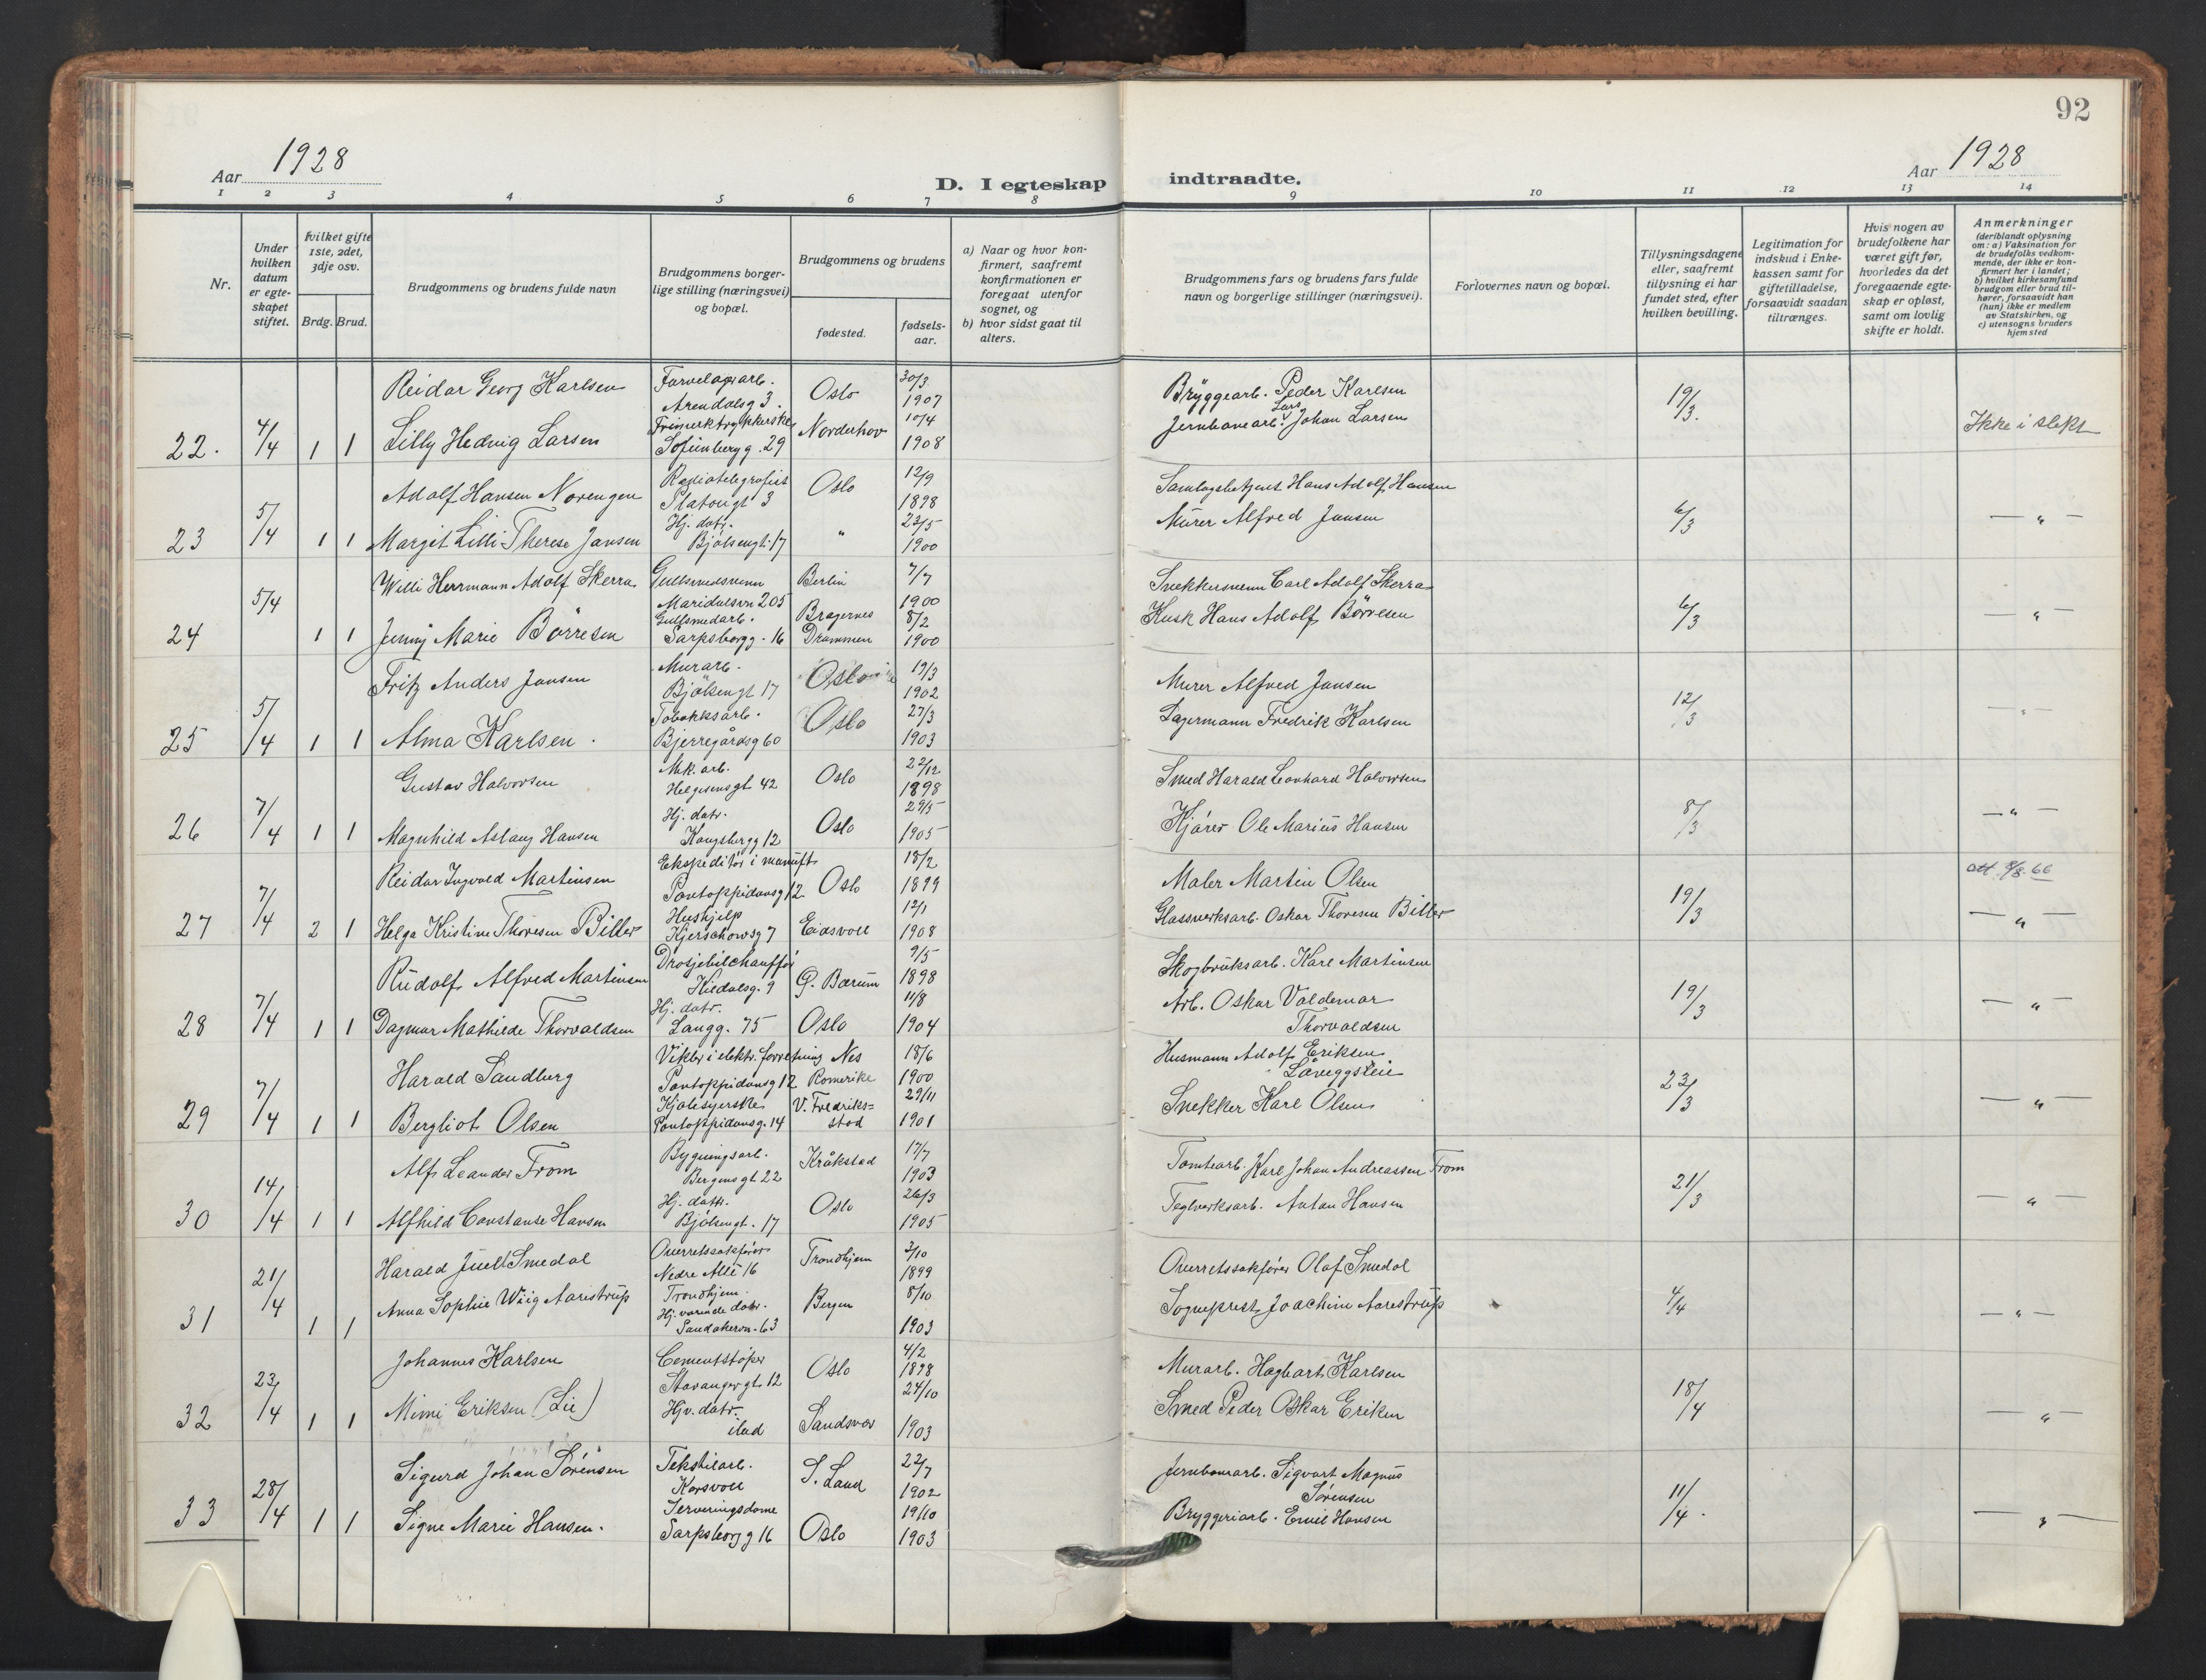 92
Aar 1928
D. I egteskap
indtraadte.
Aar 1928
1 2 3 4 5 6 7 8 9 10 11 12 13 14
Nr.
Under hvilken datum er egteskapet stiftet.
hvilket gifte 1ste, 2det, 3dje osv.
Brdg. Brud.
Brudgommens og brudens fulde navn
Brudgommens borgerlige stilling (næringsvei) og bopæl.
Brudgommens og brudens
fødested.
fødselsaar.
a) Naar og hvor konfirmert, saafremt konfirmationen er foregaat utenfor sognet, og
b) hvor sidst gaat til alters.
Brudgommens fars og brudens fars fulde navn og borgerlige stillinger (næringsvei).
Forlovernes navn og bopæl.
Tillysningsdagene eller, saafremt tillysning ei har fundet sted, efter hvilken bevilling.
Legitimation for indskud i Enkekassen samt for giftetilladelse, forsaavidt saadan tiltrænges.
Hvis nogen av brudefolkene har været gift før, hvorledes da det foregaaende egteskap er opløst, samt om lovlig skifte er holdt.
Anmerkninger
(deriblandt oplysning om: a) Vaksination for de brudefolks vedkommende, der ikke er konfirmert her i landet; b) hvilket kirkesamfund brudgom eller brud tilhører, forsaavidt han (hun) ikke er medlem av Statskirken, og c) utensogns bruders hjemsted
Reidar Georg Karlsen Farvelagerarb. Arendalsg 3. Oslo 30/3 1907 Bryggearb. Peder Karlsen 19/3.
22. 4/4 1 1 Lilly Hedvig Larsen Frimerktrykkerske Sofienbergg. 29 Norderhov 10/4 1908 Jernbanearb. Lars Johan Larsen Ikke i slekt
Adolf Hansen Norengen Radiotelegrafist Platougt 3 Oslo 12/9 1898 Samlagsbetjent Hans Adolf Hansen 6/3
23 5/4 1 1 Margit Lilli Therese Jansen Hj. datr. Bjølsengt. 17 " 23/5 1900 Murer Alfred Jansen — " —
Willi Herrmann Adolf Skerra Gullsmedsvenn Maridalsvn 205 Berlin 7/7 1900 Snekkersvenn Carl Adolf Skerra 6/3
24 5/4 1 1 Jenny Marie Børresen Gullsmedarb. Sarpsborgg. 16 Bragernes Drammen 8/2 1900 Kusk Hans Adolf Børresen — " —
Fritz Anders Jansen Murarb. Bjølsengt 17 Oslo 19/3 1902 Murer Alfred Jansen 12/3
25 5/4 1 1 Alma Karlsen. Tobakksarb. Bjerregårdsg 60 Oslo 27/3 1903 Lagermann Fredrik Karlsen — " —
Gustav Halvorsen Mek. arb. Helgesensgt. 42 Oslo 22/12 1898 Smed Harald Leonhard Halvorsen 8/3
26 7/4 1 1 Magnhild Aslaug Hansen Hj. datr. Kongsbergg 12 Oslo 29/5 1905 Kjører Ole Marius Hansen — " —
Reidar Ingvald Martinsen Ekspeditør i manuft. Pontoppidansg 12 Oslo 18/2 1899 Maler Martin Olsen 19/3
27 7/4 2 1 Helga Kristine Thoresen Biller Hushjelp Kjerschowsg 7 Eidsvoll 12/1 1908 Glassverksarb. Oskar Thoresen Biller — " —
Rudolf Alfred Martinsen Drosjebilchauffør Kiedalsg. 9 Ø. Bærum 9/5 1898 Skogbruksarb. Karl Martinsen 19/3
28 7/4 1 1 Dagmar Mathilde Thorvaldsen Hj. datr. Langg. 75 Oslo 11/8 1904 Arb. Oskar Valdemar Thorvaldsen — " —
Harald Sandberg Vikler i elektr. forretning Pontoppidansg 12 Nes Romerike 18/6 1900 Husmann Adolf Eriksen Låveggsleie 23/3
29 7/4 1 1 Bergliot Olsen Kjolesyerske Pontoppidansg. 14 V. Fredrikstad 29/11 1901 Snekker Karl Olsen — " —
Alf Leander From Bygningsarb. Bergensgt. 22 Kråkstad 17/7 1903 Tomtearb. Karl Johan Andreassen From 21/3
30 14/4 1 1 Alfhild Constanse Hansen Hj. datr. Bjølsengt. 17 Oslo 26/3 1905 Teglverksarb. Anton Hansen — " —
Harald Juell Smedal Overretssakfører Nedre Allé 16 Trondhjem. Trondhjem 3/10 1899 Overretssakfører Olaf Smedal 4/4
31 21/4 1 1 Anna Sophie Wiig Aarestrup Hj. værende datr. Sandakervn. 63 Bergen 8/10 1903 Sogneprest Joachim Aarestrup — " —
Johannes Karlsen Cementstøper Stavangergt. 12 Oslo 4/2 1898 Murarb. Hagbart Karlsen 18/4
32 23/4 1 1 Mimi Eriksen (Lie) Hjv. datr. sted Sandsvær 24/10 1903 Smed Peder Oskar Eriksen — " —
Sigurd Johan Sørensen Tekstilarb. Korsvoll S. Land 22/7 1902 Jernbanearb. Sigvart Magnus Sørensen 11/4.
33 28/4 1 1 Signe Marie Hansen. Serveringsdame Sarpsborgg 16 Oslo 19/10 1903 Bryggeriarb. Emil Hansen — " —